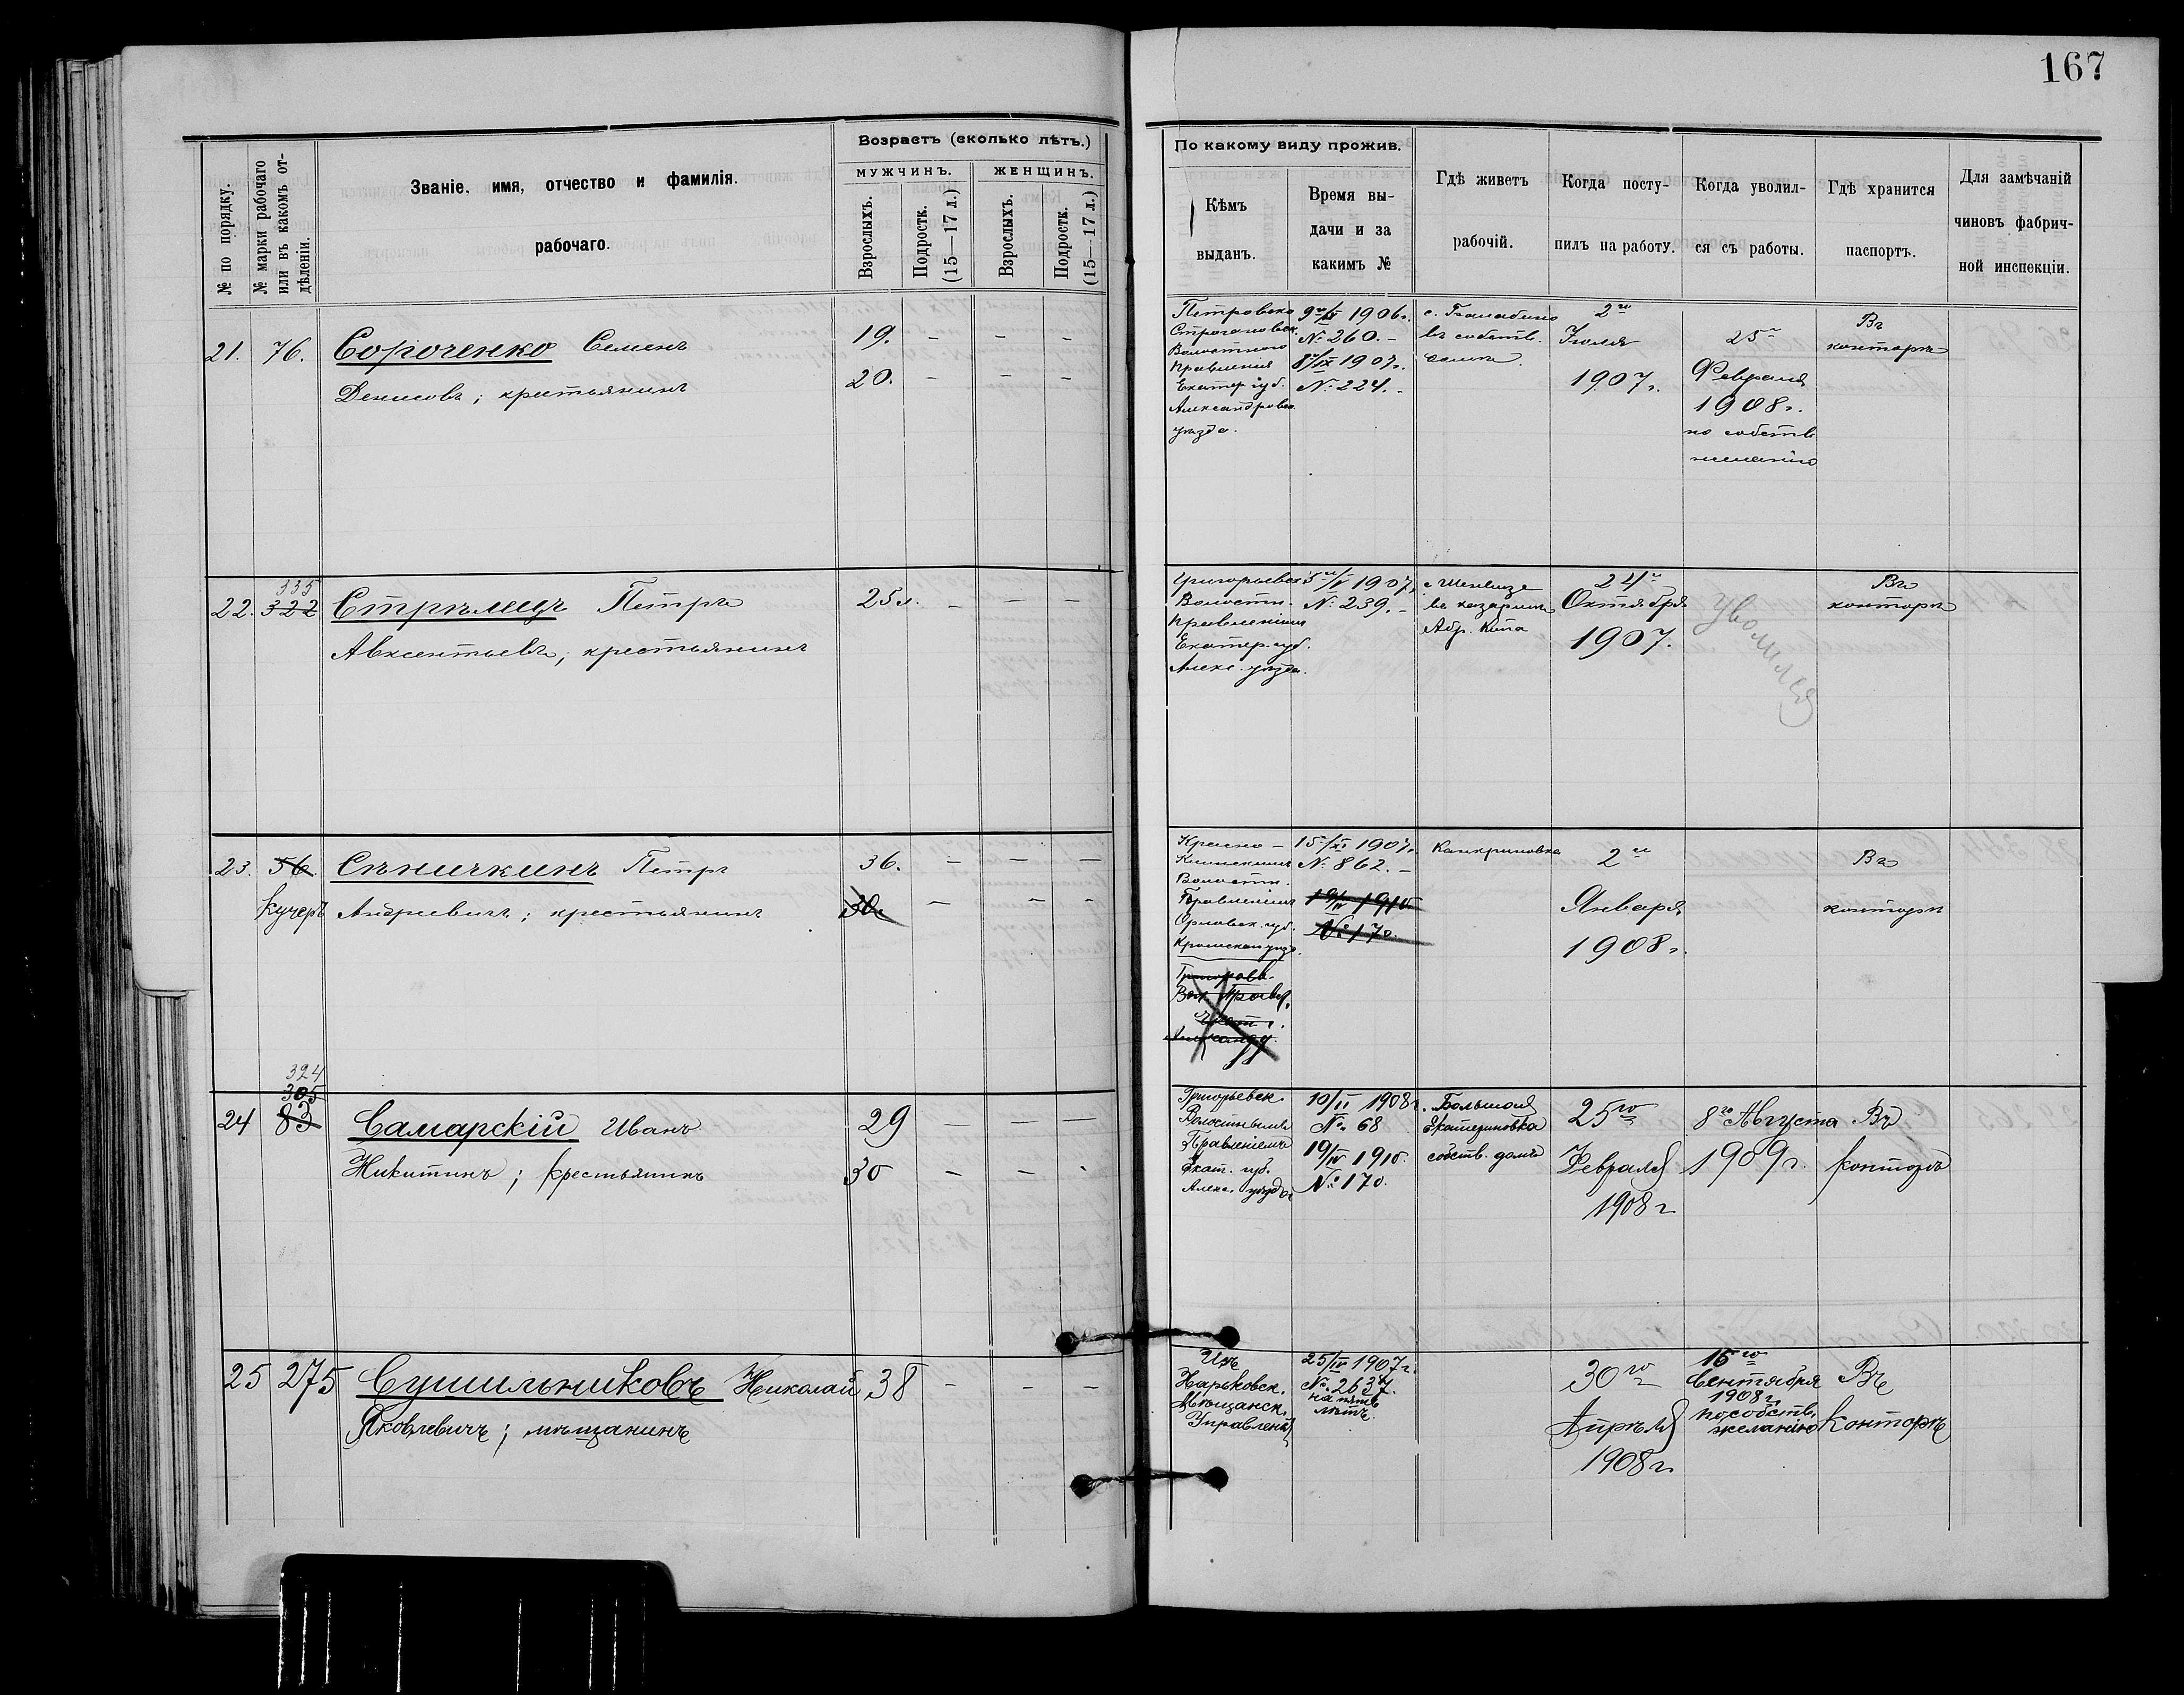 167
№ по порядку.
№ марки рабочаго
или въ какомъ от-
дѣленіи.
Званіе, имя, отчество и фамилія.
рабочаго.
Возрастъ (сколько лѣтъ.)
МУЖЧИНЪ.
ЖЕНЩИНЪ.
Взрослыхъ.
Подростк.
(15—17 л.)
Взрослыхъ.
Подростк.
(15—17 л.)
По какому виду прожив.
Кѣмъ
выданъ.
Время вы-
дачи и за
какимъ №
Гдѣ живетъ
рабочій.
Когда посту-
пилъ на работу.
Когда уволил-
ся съ работы.
Гдѣ хранится
паспортъ.
Для замѣчаній
чиновъ фабрич-
ной инспекціи.
21. 76. Сороченко Семенъ
Денисовъ; крестьянинъ
19. – – –
20. – – –
Петровско
Строгановск.
Волостного
Правленія
Екатер. губ.
Александровск.
уѣзда.
1906г.
№ 260.–
1907г.
№ 224.–
с.
въ собств.
2го
Іюля
1907г.
25го
Февраля
1908г.
по собств
желанію
Въ
конторѣ
335
22. 322 Стрѣлецъ Петръ
Авксентьевъ; крестьянинъ
25л. – – –
Григорьевск
Волостн.
Правленіемъ
Екатер. губ.
Алекс. уѣзда.
1907г.
№ 239.–
въ казармѣ
24го
Октября
1907.
Уволился
Въ
конторѣ
23. 56. Сѣничкинъ Петръ
Кучеръ Андреевичъ; крестьянинъ
36. – – –
30. – – –
Волостн.
Правленіемъ
Орловск. губ.
15/XI 1907г.
№ 862.–
19/IV 1910
№ 170.
Канкриновка
2го
Января
1908г.
Въ
конторѣ
394
305
24 83 Самарскій Иванъ
Никитинъ; крестьянинъ
29 – – –
30 – – –
Григорьевск.
Волостнымъ
Правленіемъ
Екат. губ.
Алекс. уѣзда
10/II 1908г.
№ 68
19/IV 1910.
№ 170.
Большая
Екатериновка
собств. домъ
25го
Февраля
1908г
8го Августа
1909г.
Въ
конторѣ
25 275 Сушильниковъ Николай
Яковлевичъ; мѣщанинъ
38 – – –
Изъ
Харьковск.
Мѣщанск.
Управленія
25/IV 1907г.
№ 2637.
на пять
лѣтъ.
30го
Апрѣля
1908г.
16го
Сентября
1908г.
по собств.
желанію
Въ
Конторѣ